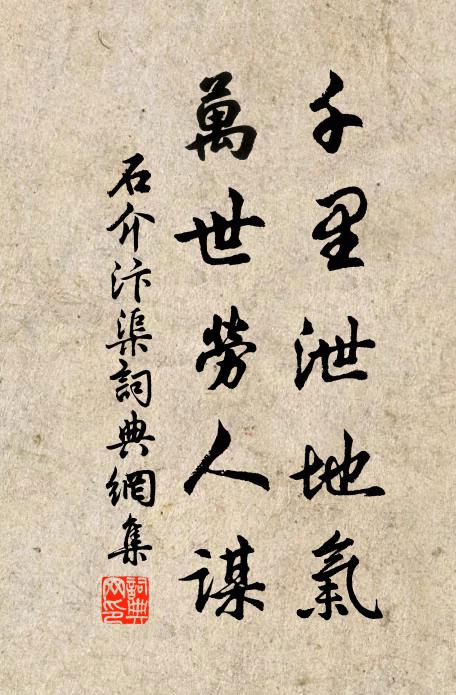 千里泄地氣
萬世勞人謀
石介汴渠詞典網集
詞典
网印